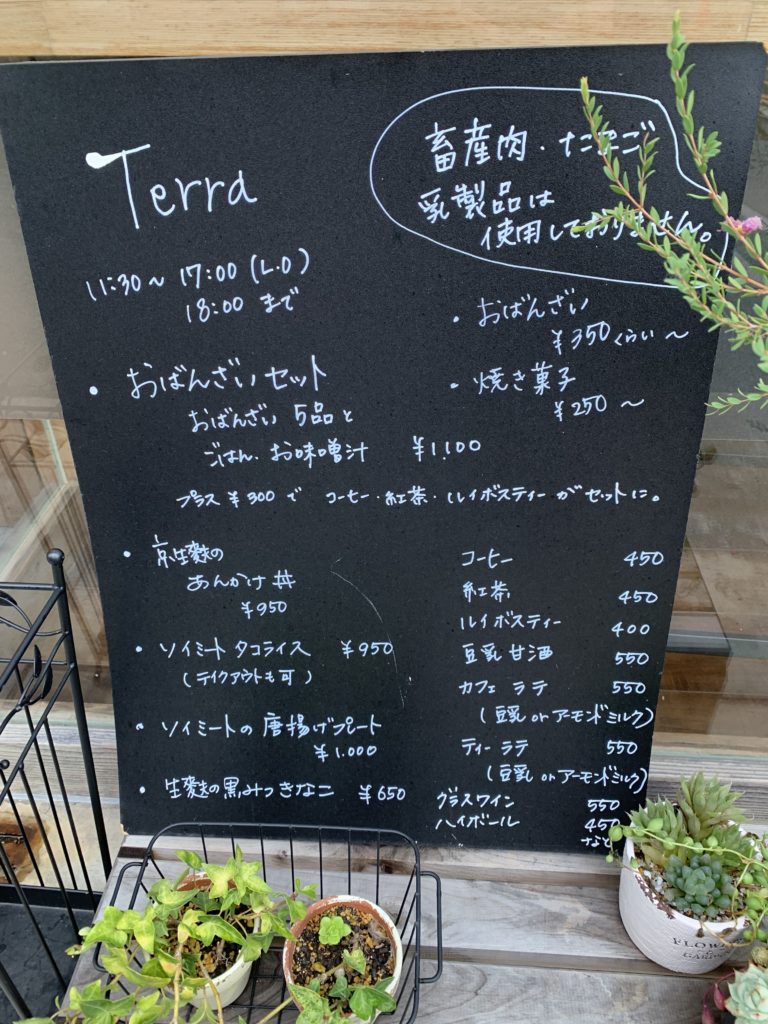 Terra
畜産肉・たまご
乳製品は
使用しておりません。
11:30～17:00(L.O)
18:00まで
・おばんざい
¥350くらい～
・焼き菓子
¥250～
・おばんざいセット
おばんざい5品と
ごはん、お味噌汁 ¥1,100
プラス¥300で コーヒー・紅茶・ルイボスティーがセットに。
・京生麩の
あんかけ丼
¥950
・ソイミートタコライス ¥950
(テイクアウトも可)
・ソイミートの唐揚げプレート
¥1.000
・生麩の黒みつきなこ ¥650
コーヒー 450
紅茶 450
ルイボスティー 400
豆乳甘酒 550
カフェラテ 550
(豆乳orアーモンドミルク)
ティーラテ 550
(豆乳orアーモンドミルク)
グラスワイン 550
ハイボール 450
など
FLOWER
GARDEN